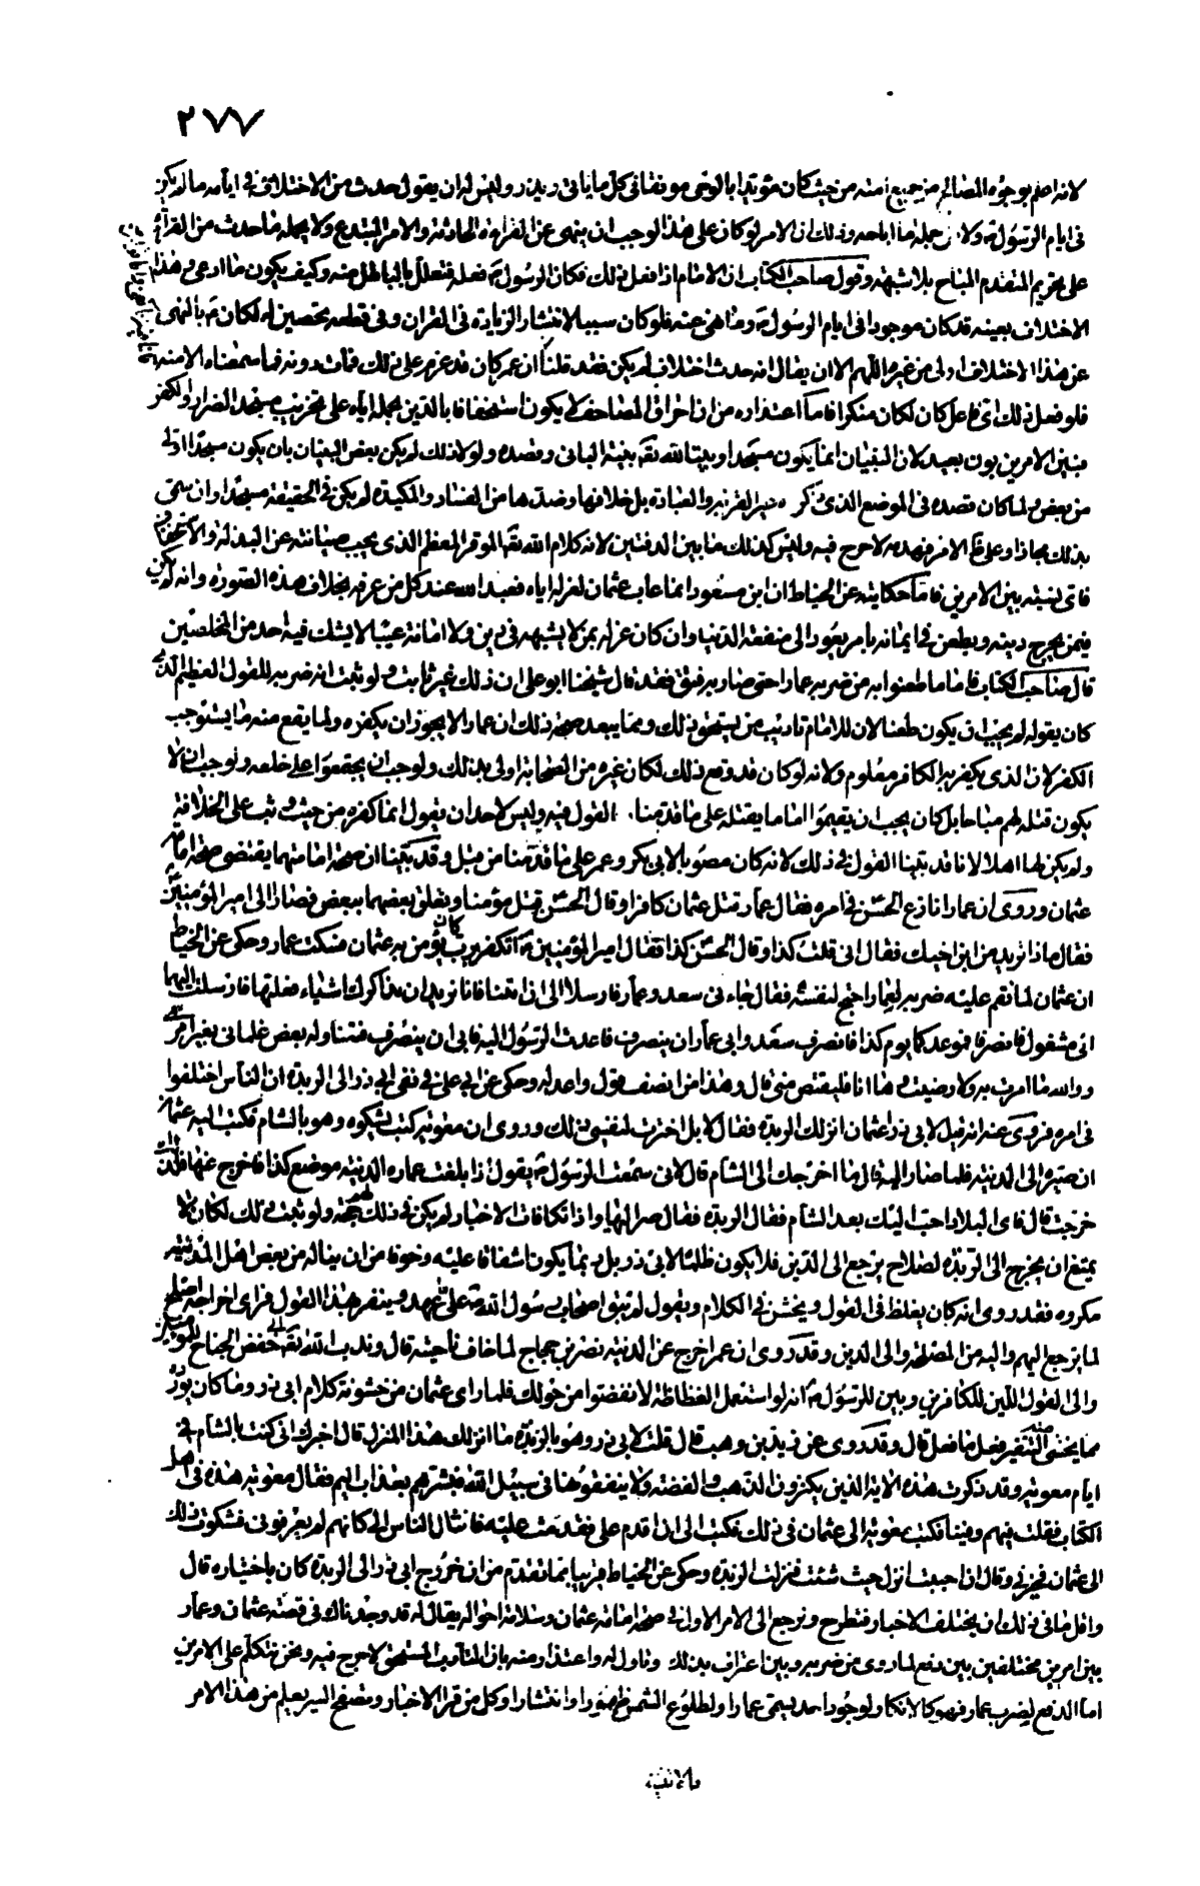 ٢٧٧
لانه اعلم بوجوه المصالح من جميع امته من حيث كان مؤيدا بالوحى موفقا فى كل ما ياتى ويذر وليس له ان يقول حدث من الاختلاف فى ايامه ما لم يكن
فى ايام الرسول ولا من جملة ما اباحه وذلك ان الامر لو كان على هذا لوجب ان ينهى عن القراءة الحادثة والامر المبتدع ولا يحمله ما حدث من القراءة
على تحريم المتقدم المباح بلا شبهة وقول صاحب الكتاب ان الامام اذا فعل ذلك فكان الرسول فعله فتعلل بالباطل منه وكيف يكون ما ادعى وهذا
الاختلاف بعينه قد كان موجودا فى ايام الرسول وما نهى عنه فلو كان سببا لانتشار الزيادة فى القران وفى قطعه تحصين له لكان بالنهى
عن هذا الاختلاف اولى من غيره اللهم الا ان يقال انه حدث اختلاف لم يكن فقد قلنا ان عمر كان قد عزم على ذلك فمات دونه فما سمعناه الا منه
فلو فعل ذلك اى فاعل كان لكان منكرا فاما اعتذاره من ان احراق المصاحف لا يكون استخفافا بالدين بحمله اياه على تخريب مسجد الضرار والكفر
فبين الامرين بون بعيد لان البنيان انما يكون مسجدا وبيتا لله بنية البانى وقصده ولولا ذلك لم يكن بعض البنيان بان يكون مسجدا اولى
من بعض ولما كان قصده فى الموضع الذى ذكر غير القربة والعبادة بل خلافها وضدها من الفساد والمكيدة لم يكن فى الحقيقة مسجدا وان سمى
بذلك مجازا وعلى ظاهر الامر فهدمه لا حرج فيه وليس كذلك ما بين الدفتين لانه كلام الله الموقر المعظم الذى يجب صيانته عن البذلة والاستخفاف
فاى نسبة بين الامرين فاما حكايته عن الخياط ان ابن مسعود انما عاب عثمان لعزله اياه فعبد الله عند كل من عرفه بخلاف هذه الصورة وانه لم يكن
فيمن يحرج دينه ويطعن فى امانه بامر يعود الى منفعة الدنيا وان كان عزله بمن لا يشبهه فى دين ولا امانة عيبا لا يشك فيه احد من المخلصين
قال صاحب الكتاب فاما ما طعنوا به من ضربه عمارا حتى صار به فتق فقد قال شيخنا ابو على ان ذلك غير ثابت ولو ثبت انه ضربه للقول العظيم الذى
كان يقوله لم يجب ان يكون طعنا لان للامام تاديب من يستحق ذلك ومما يبعد صحة ذلك ان عمارا لا يجوز ان يكفره ولما يقع منه ما يستوجب
الكفر لان الذى يكفر به الكافر معلوم ولانه لو كان قد وقع ذلك لكان غيره من الصحابة اولى بذلك ولوجب ان يجتمعوا على خلعه ولوجب ان لا
يكون قتله لهم مباحا بل كان يجب ان يقيموا اماما يقتله على ما قدمنا. القول فيه وليس لاحد ان يقول انما كفره من حيث وثب على الخلافة
ولم يكن لها اهلا لانا قد بينا القول فى ذلك لانه كان مصوبا لابى بكر وعمر على ما قدمنا من قبل وقد بينا ان صحة امامتهما يقتضى صحة امامة
عثمان وروى ان عمارا نازع الحسن فى امره فقال عمار قتل عثمان كافرا وقال الحسن قتل مؤمنا وتعلق بعضهما ببعض فصارا الى امير المؤمنين
فقال ماذا تريد من ابن اخيك فقال انى قلت كذا وقال الحسن كذا فقال امير المؤمنين اتكفر برب كان يؤمن به عثمان فسكت عمار وحكى عن الخياط
ان عثمان لما نقم عليه ضربه لعمار احتج لنفسه فقال جاءنى سعد وعمار فارسلا الى ان ائتنا فانا نريد ان نذاكرك اشياء فعلتها فارسلت اليهما
انى مشغول فانصرفا فموعدكما يوم كذا فانصرف سعد وابى عمار ان ينصرف فاعدت الرسول اليه فابى ان ينصرف فتناوله بعض غلمانى بغير امرى
ووالله ما امرت به ولا رضيت وها انا فليقتص منى قال وهذا من انصف قول واعدله وحكى عن ابى على فى نفى ابى ذر الى الربذة ان الناس اختلفوا
فى امره فروى عنه انه قيل لابى ذر اعثمان انزلك الربذة فقال لا بل اخترت لنفسى ذلك وروى ان معوية كتب يشكوه وهو بالشام فكتب اليه عثمان
ان صيره الى المدينة فلما صار اليه قال ما اخرجك الى الشام قال لانى سمعت الرسول يقول اذا بلغت عمارة المدينة موضع كذا فاخرج عنها فلذلك
خرجت قال فاى البلاد احب اليك بعد الشام فقال الربذة فقال صر اليها واذا تكافات الاخبار لم يكن فى ذلك لهم حجة ولو ثبت ذلك لكان لا
يمتنع ان يخرج الى الربذة لصلاح يرجع الى الدين فلا يكون ظلما لابى ذر بل ربما يكون اشفاقا عليه وخوفا من ان يناله من بعض اهل المدينة
مكروه فقد روى انه كان يغلظ فى القول ويخشن فى الكلام ويقول لم يبق اصحاب رسول الله على عهده وينفر بهذا القول فراى اخراجه اصلح
لما يرجع اليهم واليه من المصلحة والى الدين وقد روى ان عمر اخرج عن المدينة نصر بن حجاج لما خاف ناحيته قال وندب الله الى خفض الجناح للمؤمنين
والى القول اللين للكافرين وبين للرسول انه لو استعمل الفظاظة لانفضوا من حولك فلما راى عثمان من خشونة كلام ابى ذر وما كان يورده
مما يخشى منه التنفير فعل ما فعل قال وقد روى عن زيد بن وهب قال قلت لابى ذر وهو بالربذة ما انزلك هذا المنزل قال اخبرك انى كنت بالشام فى
ايام معوية وقد ذكرت هذه الاية الذين يكنزون الذهب والفضة ولا ينفقونها فى سبيل الله فبشرهم بعذاب اليم فقال معوية هذه فى اهل
الكتاب فقلت فيهم وفينا فكتب معوية الى عثمان فى ذلك فكتب الى ان اقدم على فقدمت عليه فانثال الناس الى كانهم لم يعرفونى فشكوت ذلك
الى عثمان فخيرنى وقال ان احببت انزل حيث شئت فنزلت الربذة وحكى عن الخياط قريبا مما تقدم من ان خروج ابى ذر الى الربذة كان باختياره قال
واقل ما فى ذلك ان يختلف الاخبار فتطرح ونرجع الى الامر الاول فى صحة امامة عثمان وسلامة احواله يقال له قد وجدناك فى قصة عثمان وعمار
بين امرين مختلفين بين دفع لما روى من ضربه وبين اعتراف بذلك وتاول له واعتذار منه بان التاديب المستحق لا حرج فيه ونحن نتكلم على الامرين
اما الدفع لضرب عمار فهو كالانكار لوجود احد يسمى عمارا ولطلوع الشمس ظهورا وانتشارا وكل من قرا الاخبار وتصفح السير يعلم من هذا الامر
مالا تثنيه